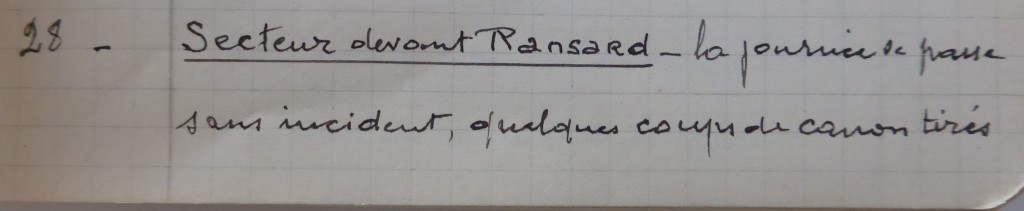 28 - Secteur devant Ransard - la journée se passe
sans incident, quelques coups de canon tirés